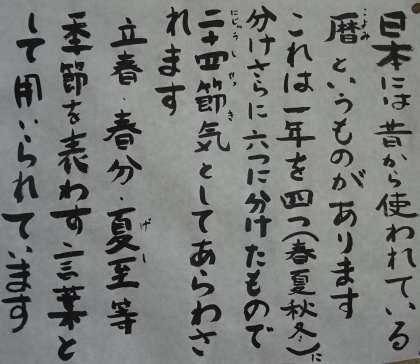 日本には昔から使われている
暦というものがあります
これは一年を四つ(春夏秋冬)に
分けさらに六つに分けたもので
二十四節気としてあらわさ
れます
立春・春分・夏至等
季節を表わす言葉と
して用いられています